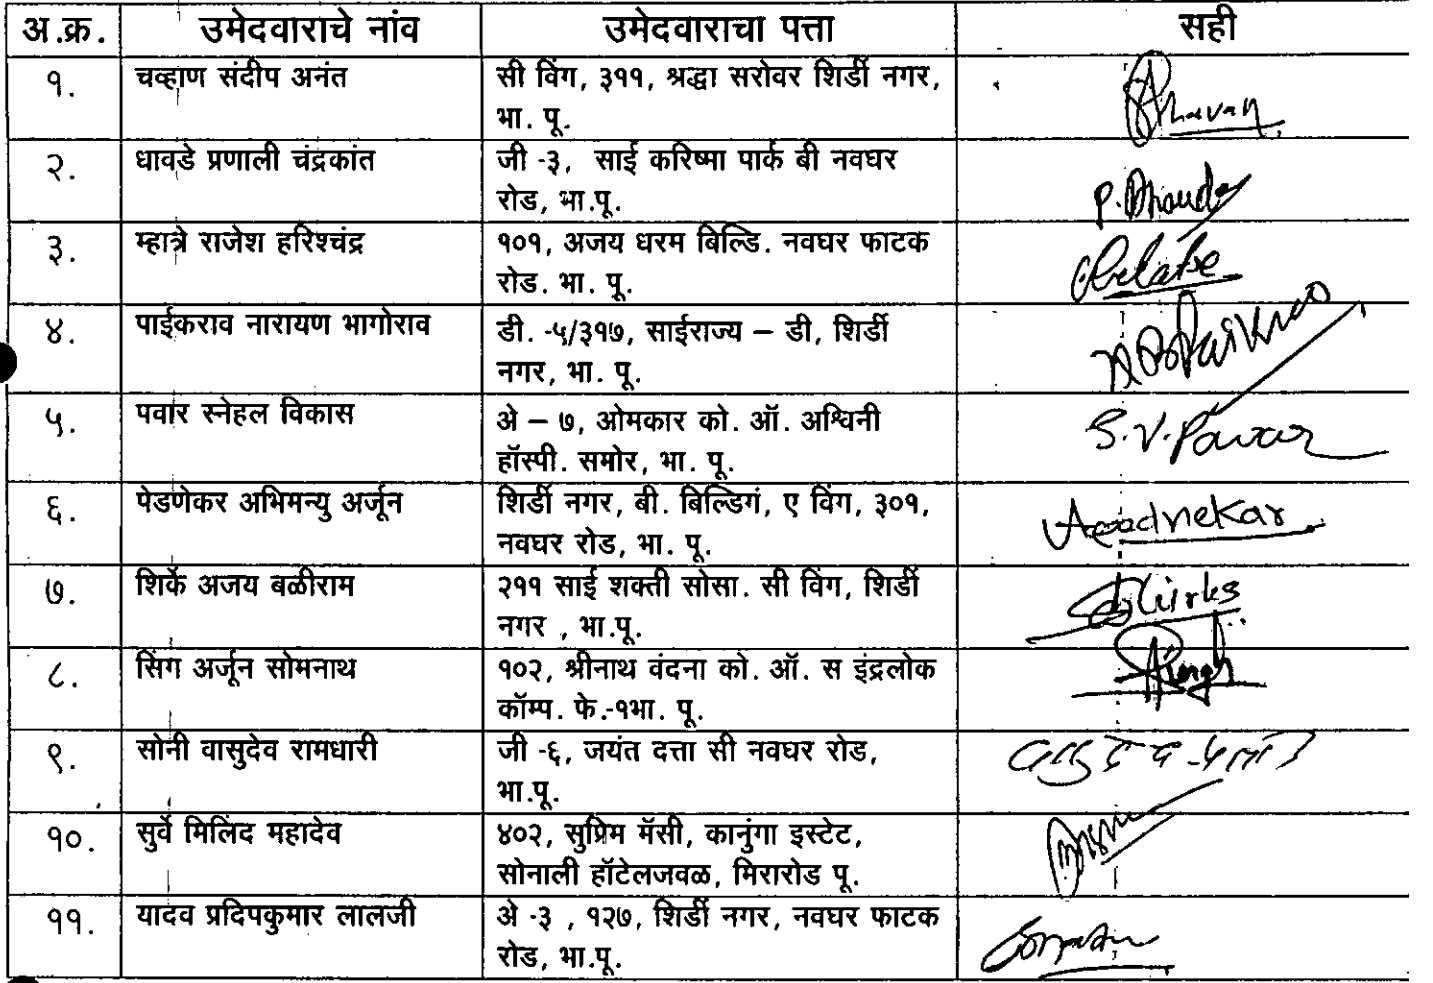 अ.क्र. उमेदवाराचे नांव उमेदवाराचा पत्ता सही
१. चव्हाण संदीप अनंत सी विंग, ३११, श्रद्धा सरोवर शिर्डी नगर,
भा. पू. Chavan
२. धावडे प्रणाली चंद्रकांत जी -३, साई करिष्मा पार्क बी नवघर
रोड, भा.पू. P.
३. म्हात्रे राजेश हरिश्चंद्र १०१, अजय धरम बिल्डि. नवघर फाटक
रोड. भा. पू.
४. पाईकराव नारायण भागोराव डी. -५/३१७, साईराज्य – डी, शिर्डी
नगर, भा. पू.
५. पवार स्नेहल विकास अे – ७, ओमकार को. ऑ. अश्विनी
हॉस्पी. समोर, भा. पू. S.V.Pawar
६. पेडणेकर अभिमन्यु अर्जून शिर्डी नगर, बी. बिल्डिगं, ए विंग, ३०१,
नवघर रोड, भा. पू.
७. शिर्के अजय बळीराम २११ साई शक्ती सोसा. सी विंग, शिर्डी
नगर , भा.पू.
८. सिंग अर्जून सोमनाथ १०२, श्रीनाथ वंदना को. ऑ. स इंद्रलोक
कॉम्प. फे.-१भा. पू. Singh
९. सोनी वासुदेव रामधारी जी -६, जयंत दत्ता सी नवघर रोड,
भा.पू.
१०. सुर्वे मिलिंद महादेव ४०२, सुप्रिम मॅसी, कानुंगा इस्टेट,
सोनाली हॉटेलजवळ, मिरारोड पू.
११. यादव प्रदिपकुमार लालजी अे -३ , १२७, शिर्डी नगर, नवघर फाटक
रोड, भा.पू.